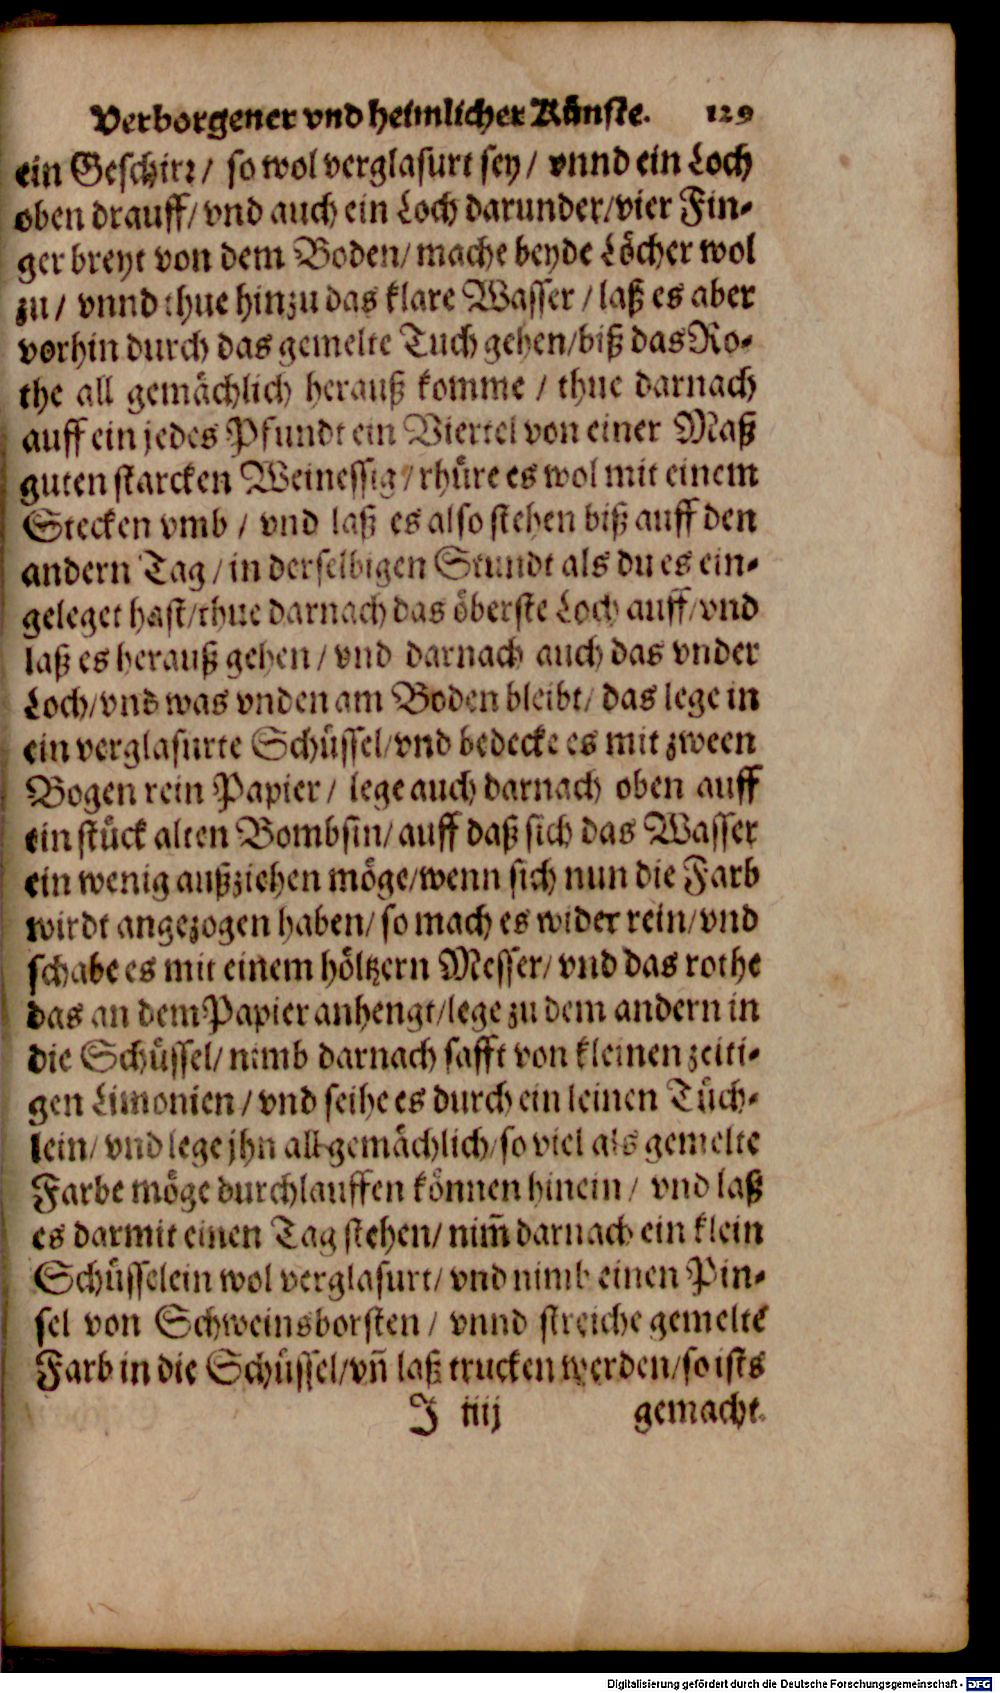 Verborgener vnd heimlicher Künste. 129
ein Geschirr / so wol verglasurt sey / vnnd ein Loch
oben drauff / vnd auch ein Loch darunder / vier Fin-
ger breyt von dem Boden / mache beyde Löcher wol
zu / vnnd thue hinzu das klare Wasser / laß es aber
vorhin durch das gemelte Tuch gehen / biß das Ro-
the all gemächlich herauß komme / thue darnach
auff ein jedes Pfundt ein Viertel von einer Maß
guten starcken Weinessig / rhüre es wol mit einem
Stecken vmb / vnd laß es also stehen biß auff den
andern Tag / in derselbigen Stundt als du es ein-
geleget hast / thue darnach das öberste Loch auff / vnd
laß es herauß gehen / vnd darnach auch das vnder
Loch / vnd was vnden am Boden bleibt / das lege in
ein verglasurte Schüssel / vnd bedecke es mit zween
Bogen rein Papier / lege auch darnach oben auff
ein stück alten Bombsin / auff daß sich das Wasser
ein wenig außziehen möge / wenn sich nun die Farb
wirdt angezogen haben / so mach es wider rein / vnd
schabe es mit einem höltzern Messer / vnd das rothe
das an dem Papier anhengt / lege zu dem andern in
die Schüssel / nimb darnach safft von kleinen zeiti-
gen Limonien / vnd seihe es durch ein leinen Tüch-
lein / vnd lege jhn allgemächlich / so viel als gemelte
Farbe möge durchlauffen können hinein / vnd laß
es darmit einen Tag stehen / nim̃ darnach ein klein
Schüsselein wol verglasurt / vnd nimb einen Pin-
sel von Schweinsborsten / vnnd streiche gemelte
Farb in die Schüssel / vñ laß trucken werden / so ists
J iiij gemacht.
Digitalisierung gefördert durch die Deutsche Forschungsgemeinschaft - DFG